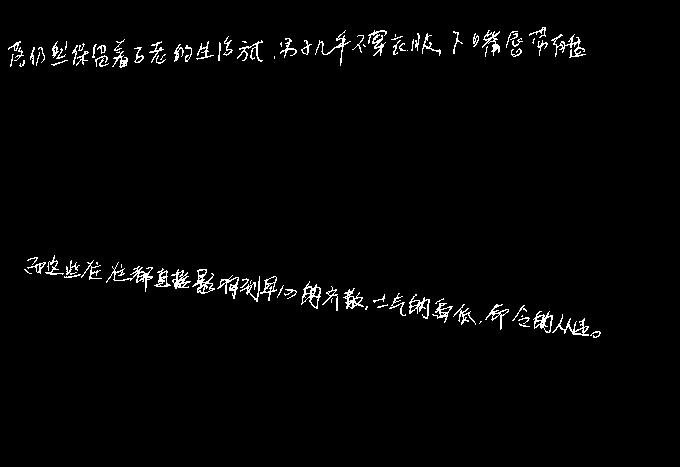 落仍然保留着古老的生活方式，男子几乎不穿衣服，下口嘴唇带有盘
而这些往往都直接影响到军心的齐散，士气的高低，命令的从违。